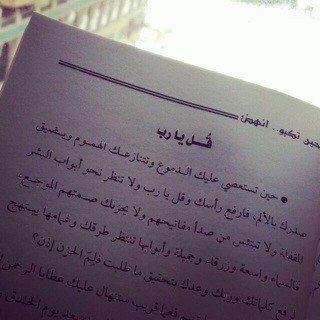 حين تكبو.. انهض
قُل يا رب
● حين تستعصي عليك الدموع وتتنازعك الهموم ويضيق
صدرك بالألم، فارفع رأسك وقل يا رب ولا تنظر نحو أبواب البشر
المقفلة ولا تبتئس من صدأ مفاتيحهم ولا يحزنك صمتهم الموجع،
فالسماء واسعة وزرقاء وجميلة وأبوابها تنتظر طرقك وغمامها يبتهج
لرفع كلماتك وربك وعدك بتحقيق ما طلبت فلِمَ الحزن إذن؟
فعما قريب ستنهال عليك عطايا الرحمن
بعد يوم الخندق